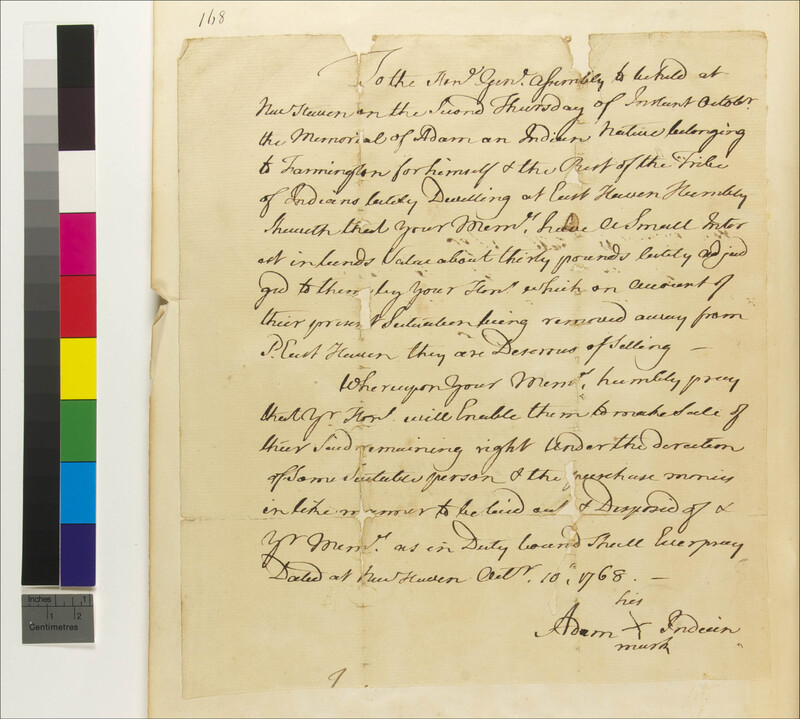 168
To the Honl. Genl. Assembly to be held at
New Haven on the Second Thursday of Instant Octobr.
the Memorial of Adam an Indian Native belonging
to Farmington for himself & the Rest of the Tribe
of Indians lately Dwelling at East Haven Humbly
Sheweth that Your Memts. have a Small Inter
est in Lands Value about thirty pounds lately adjud
ged to them by Your Honrs. which on account of
their present Situation being removed away from
Sd. East Haven they are Deserous of Selling —
Whereupon Your Memts. humbly pray
that Yr. Honrs. will Enable them to make Sale of
their Said remaining right Under the derection
of Some Suitable person & the purchase money
in like manner to be laid out & Disposed of &
Yr. Memts. as in Duty bound Shall Ever pray
Dated at New Haven Octbr. 10, 1768. —
his
Adam X Indian
mark
Inches 1
1 2
Centimetres